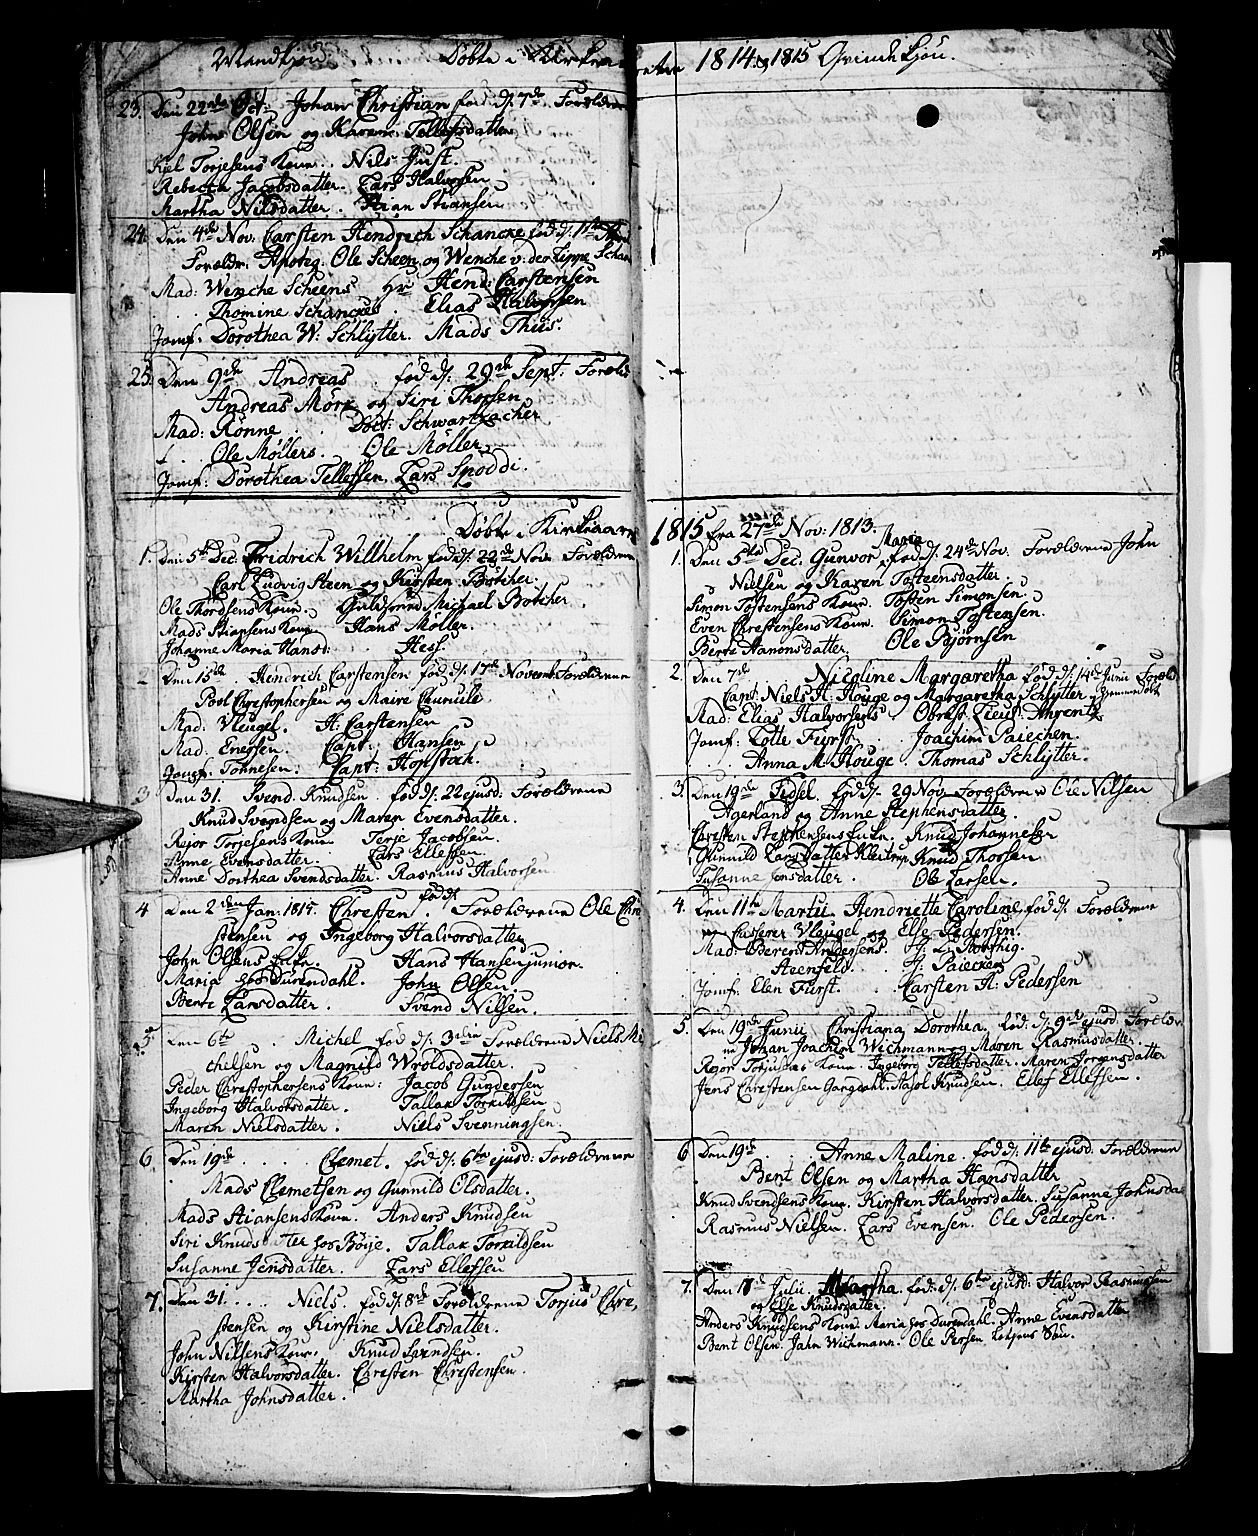 Mandkjön Döbte i Kirkeaaret 1814 og 1815 Qvindekjön.
23. Den 22de Oct: Johan Christian fød d: 7de Forældrene
John Olsen og Karen Tellefsdatter
Kiel Torjesens Kone. Nils Just.
Rebecca Jacobsdatter. Lars Halvorsen
Martha Nilsdatter. Stian Stiansen
24. Den 4de Nov: Carsten Hendrich Schancke fød d: 11te
Forældr: Apoteg: Ole Scheen og Wenche v: der Lippe Schan
Mad: Wenche Scheens Hr Hend: Carstensen
Thomine Schanckes. Elias Halvorsen
Jomf: Dorothea W: Schlytter. Mads Thiis.
25. Den 9de Andreas fød d: 29de Sept: Foræld
Andreas Mörk og Siri Thorsen
Mad: Rønne Doct: Schwartzacher
Ole Møllers. Ole Møller
Jomf: Dorothea Tellefsen. Lars Spoddi.
Döbte i Kirkeaaret
1. Den 5te Dec. Fridrich Willhelm fød d: 22de Nov: Forældrene
Carl Ludvig Steen og Kirsten Bötcher.
Ole Thordsens Kone. Guldsmed Michael Bötcher.
Mads Stiansens Kone Hans Møller.
Johanne Maria Hansd: Hess.
2 Den 15de Hendrich Carstensen fød d: 17de Novemb: Forældrene
Povl Christophersen og Maire
Mad: Vleugel. H: Carstensen
Mad: Enersen. Capt: Hansen
Jomf: Tönnesen. Capt: Hopstock.
3 Den 31. Svend Knudsen fød d: 22 ejusd: Forældrene
Knud Svendsen og Maren Evensdatter.
Rejor Torjesens Kone Terje Jacobsen.
Anne Evensdatter. Lars Ellefsen
Anne Dorthea Svendsdatter. Rasmus Halvorsen
4 Den 2den Jan: 1815. Christen. fød d: Forældrene Ole Chre
stensen og Ingeborg Halvorsdatter
John Olsens Enke. Hans Hansen junior.
Maria hos Durendahl. John Olsen.
Berte Larsdatter. Svend Nilsen.
5 Den 6te Michel fød d: 3die Forældrene Niels Mi
chelsen og Magnild Wroldsdatter.
Peder Christophersens Kone: Jacob Gundersen
Ingeborg Halvorsdatter. Tallak Torkildsen
Maren Nielsdatter. Niels Svenningsen.
6 Den 19de Clemet. fød d: 6te ejusd: Forældrene
Mads Clemetsen og Gunnild Olsdatter.
Mads Stiansens Kone. Anders Knudsen
Siri Knudsdatter hos Böije. Tallak Torkildsen
Susanne Jensdatter. Lars Ellefsen
7. Den 31. Niels. fød d: 8de Forældrene Torjus Chre,
stensen og Kirstine Nielsdatter.
John Nilsens Kone. Knud Svendsen.
Kirsten Halvorsdatter. Christen Christensen.
Martha Johnsdatter.
1815 fra 27de Nov: 1813.
1. Den 5te Dec. Gunvor Maria fød d: 24de Nov. Forældrene John
Nielsen og Karen Tosteensdatter
Simon Tostensens Kone Tosten Simonsen
Even Christensens Kone. Simon Tostensen.
Berte Hanonsdatter. Ole Björnsen
2. Den 7de Nicoline Margaretha fød d: 14de Junii Foræld
Capt: Niels H: Houge og Margaretha Schlytter
Mad: Elias Halvorsens Obrist Lieut: Ahrentz
Jomf: Lotte Fürst. Joachim Paiechen.
Anna M. Houge. Thomas Schlytter.
3. Den 19de Sidsel. fød d: 29 Nov. Forældrene Ole Nilsen
Agerland og Anne Stephensdatter.
Christen Stephensens Enke. Knud Johannesen
Gunnild Larsdatter Kleutrup Knud Thorsen
Susanne Jensdatter. Ole Larsen.
4. Den 11te Martii Hendriette Caroline, fød d: Forældrene
Casserer Vleugel og Else Pedersen.
Mad: Berent Andersens H:
Steenfeld. H: Paiecken
Jomf: Elen Fürst. Carsten A. Pedersen
5. Den 19de Junii Christiana Dorothea. fød d: 9de ejusd: Foræld
ne Johan Joachim Wichmann og Maren Rasmusdatter.
Rejor Torjussens Kone. Ingeborg Tellefsdatter. Maren Jörgensdatter
Jens Christensen Aasol Knudsen. Ellef Ellefsen.
6 Den 19de Anne Maline. fød d: 11te ejusd: Forældrene
Bent Olsen og Martha Hansdatter
Knud Svendsens Kone. Kirsten Halvorsdatter. Susanne Johnsda
Rasmus Nielsen. Lars Evensen. Ole Pedersen.
7. Den Julii. Martha. fød: d: 6te ejusd: Halvor Rasmussen
og Else Knudsdatter.
Anders Knudsens Kone Maria hos Durendahl. Anne Evensdatter
Bent Olsen. Jahn Wichmann. Ole Persen Lodsens Søn.